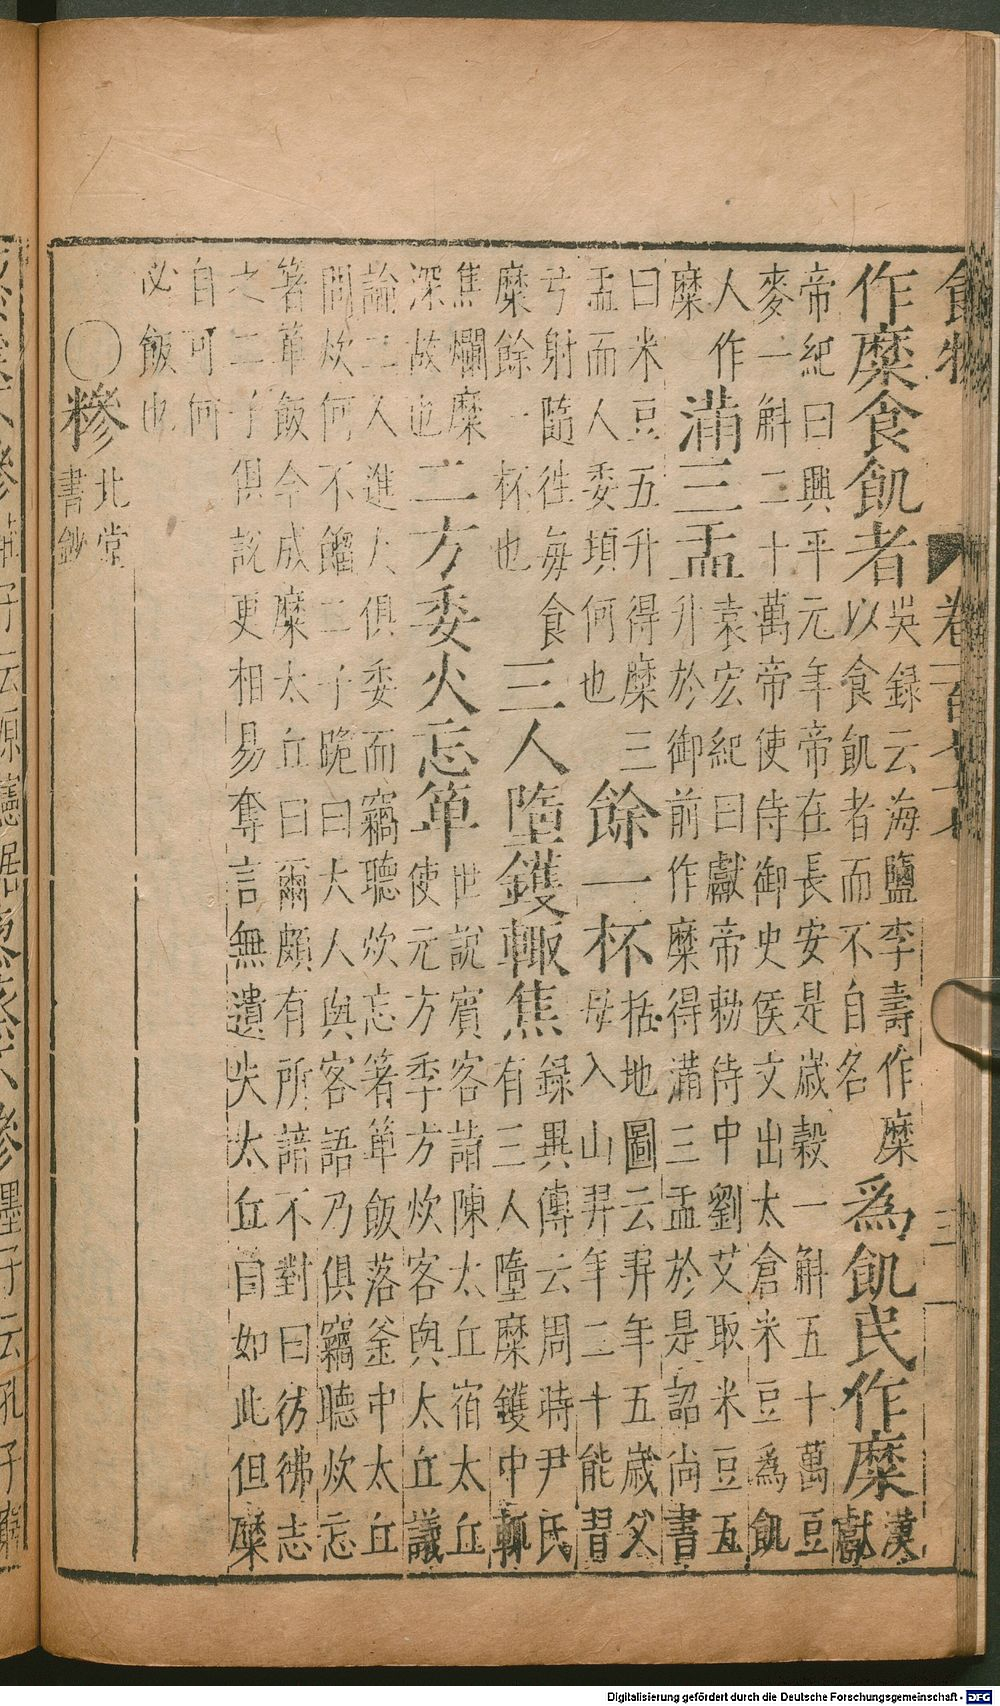 食物
卷一百
三
作糜食飢者 吳録云海鹽李壽作糜
以食飢者而不自名 為飢民作糜 漢
獻
帝紀曰興平元年帝在長安是歲穀一斛五十萬豆
麥一斛二十萬帝使侍御史侯文出太倉米豆為飢
人作
糜 滿三盂 袁宏紀曰獻帝勅侍中劉艾取米豆五
升於御前作糜得滿三盂於是詔尚書
曰米豆五升得糜三
盂而人委頓何也 餘一杯 括地圖云羿年五歲父
母入山羿年二十能習
弓射隨徃每食
糜餘一杯也 三人墮鑊輒焦 録異傳云周時尹氏
有三人墮糜鑊中輒
焦爛糜
深故也 二方委火忘箄 世說賓客詣陳太丘宿太丘
使元方季方炊客與太丘議
論二人進火俱委而竊聽炊忘箸箄飯落釜中太丘
問炊何不餾二子跪曰大人與客語乃俱竊聽炊忘
箸箄飯今成糜太丘曰爾頗有所諳不對曰彷彿志
之二子俱説更相易奪言無遺失太丘曰如此但糜
自可何
必飯也
○糝 北堂
書鈔
Digitalisierung gefördert durch die Deutsche Forschungsgemeinschaft - DFG